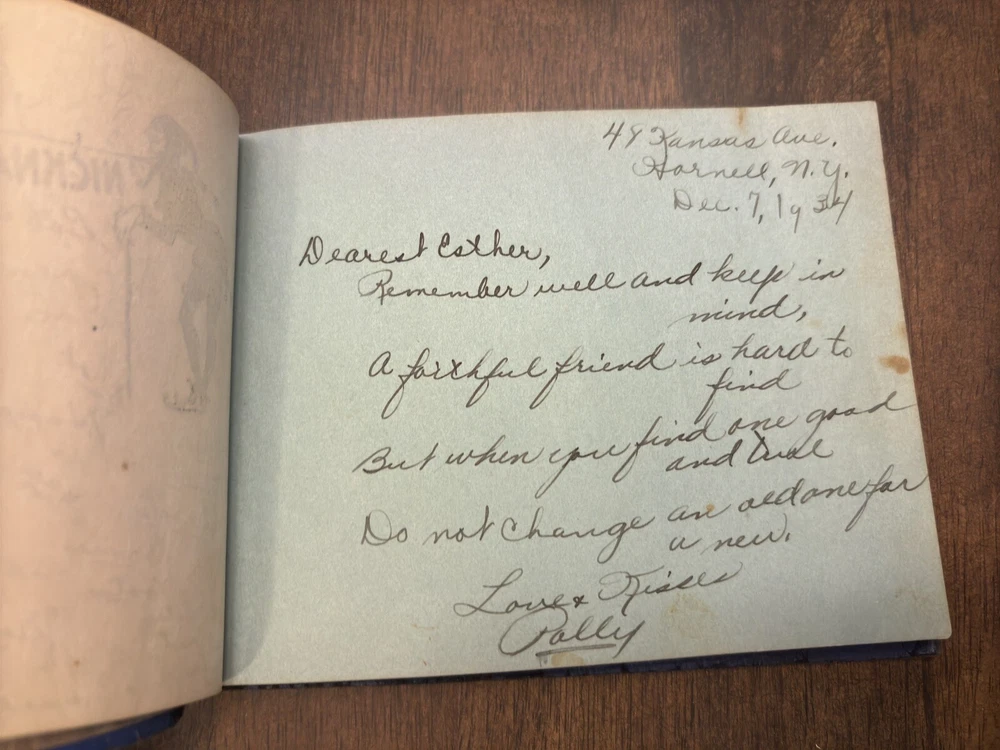 48 Kansas Ave.
Hornell, N.Y.
Dec. 7, 1934
Dearest Esther,
Remember well and keep in
mind,
A faithful friend is hard to
find
But when you find one good
and true
Do not change an old one for
a new.
Love & Kisses
Polly